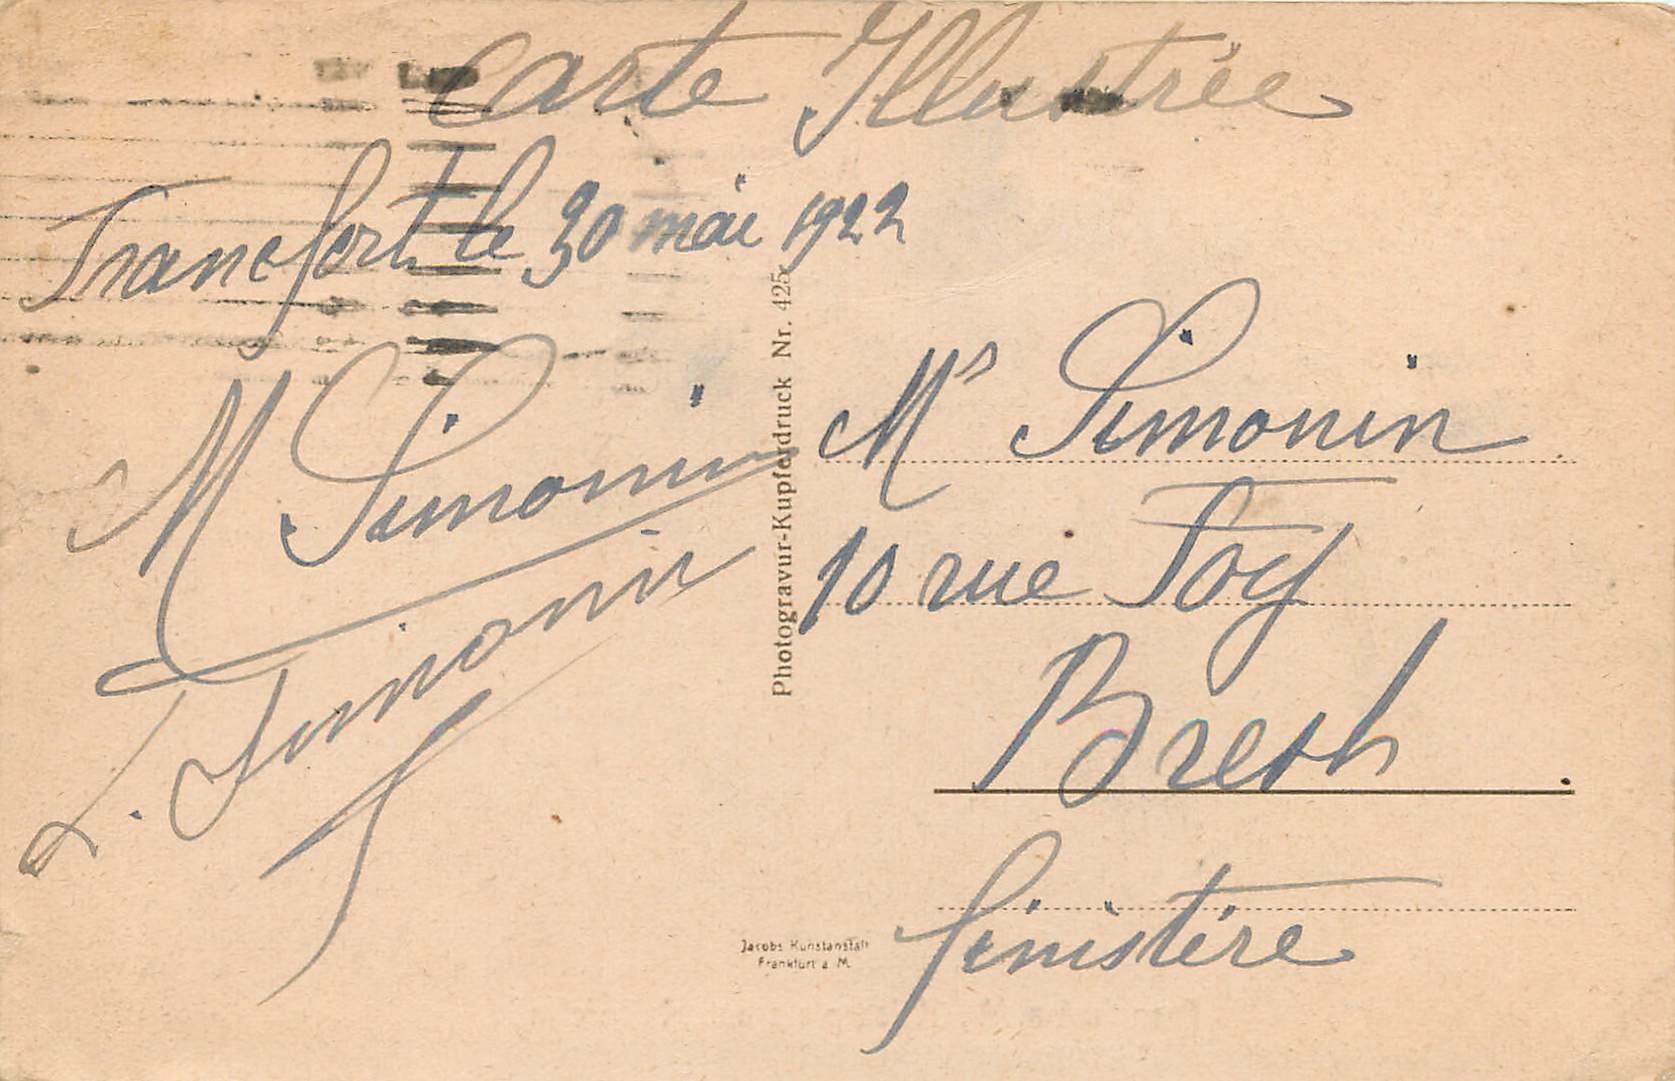 Carte Illustrée
Francfort, le 30 mai 1922
M Simonin
L. Simonin
Photogravur-Kupferdruck Nr. 425
Mr Simonin
10 rue Foy
Brest
finistère
Jacobs Kunstanstalt
Frankfurt a M.